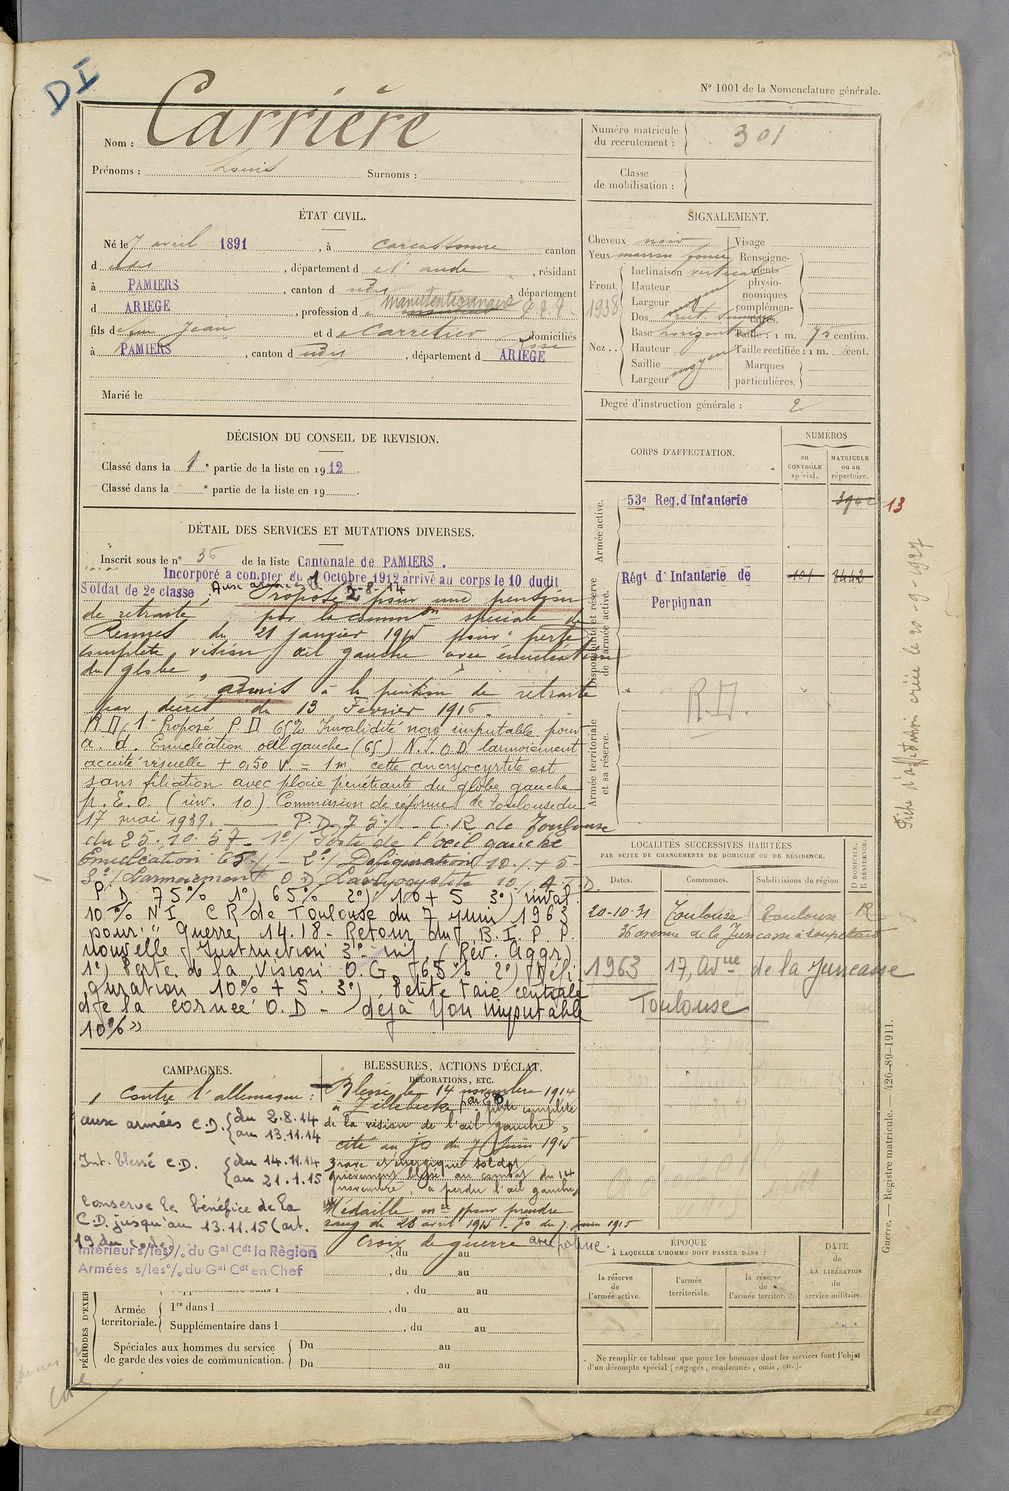 DI
N° 1001 de la Nomenclature générale.
Nom : Carrière
Prénoms : Louis Surnoms :
Numéro matricule du recrutement : 301
Classe de mobilisation :
ÉTAT CIVIL.
Né le 7 avril 1891, à Carcassonne canton
d udes, département d e l'aude, résidant
à PAMIERS, canton d udes, département
d ARIEGE, profession d e manutentionnaire
fils d e feu Jean et d e Carretier, domiciliés
à PAMIERS, canton d udes, département d ARIEGE
Marié le
SIGNALEMENT.
Cheveux noir Visage
Yeux marron foncé Renseignements physionomiques complémentaires.
Front. Inclinaison verticale
Hauteur
Largeur moyen
1938
Nez.. Dos rect.
Base horizontale Taille : 1 m. 72 centim.
Hauteur Taille rectifiée : 1 m. cent.
Saillie moyen Marques particulières.
Largeur
Degré d'instruction générale : 2
DÉCISION DU CONSEIL DE REVISION.
Classé dans la 1e partie de la liste en 1912.
Classé dans la e partie de la liste en 19 .
CORPS D'AFFECTATION.
NUMÉROS
DU CONTRÔLE spécial.
MATRICULE ou au répertoire.
Armée active.
53e Reg. d'Infanterie 3942 13
Disponibilité et réserve de l'armée active.
Régt d'Infanterie de Perpignan 101 2442
R.D.
Armée territoriale et sa réserve.
Fiche d'affectation créée le 20-9-1927
DÉTAIL DES SERVICES ET MUTATIONS DIVERSES.
Inscrit sous le n° 36 de la liste Cantonale de PAMIERS.
Incorporé a compter du 1 Octobre 1912 arrivé au corps le 10 dudit
Soldat de 2e classe, Aux armées le 2-8-14
Proposé pour une pension
de retraite par la common spéciale de
Rennes du 21 janvier 1915 pour " perte
complète vision œil gauche avec énucléation
du globe "
admis à la pension de retraite
par décret du 13 Février 1916.
1° Proposé P D 65% Invalidité non imputable pour
a. d. Enucléation œil gauche (65) N.I. O.D larmoiement
acuité visuelle + 0,50 V. = 1m. cette dacryocystite est
sans filiation avec plaie pénétrante du globe gauche
p. E. O. (inv. 10) Commission de réforme de Toulouse du
17 mai 1939. P.D. 75% C.R de Toulouse
du 25.10.57 1°/ Perte de l'œil gauche
Enucléation 65% 2°/ Défiguration 10% + 5
3°/ Larmoiement O D Dacryocystite 10%
P D 75% 1°) 65% 2°) 10 + 5 3°) inval.
10% N I. C R de Toulouse du 7 Juin 1963
pour " Guerre 14.18 - Retour
nouvelle Instruction 3° nif (Rév. Aggr)
1°) Perte de la Vision O.G. 65% 2°) Défi
guration 10% + 5. 3°) Petite Taie centrale
de la cornée O.D - déjà Non imputable
10% »
LOCALITÉS SUCCESSIVES HABITÉES
PAR SUITE DE CHANGEMENTS DE DOMICILE OU DE RÉSIDENCE.
Dates. Communes. Subdivisions de région. D DOMICILE. R RÉSIDENCE.
20-10-31 Toulouse Toulouse R
36 avenue de la Juncasse à
1963 17, Avnue de la Juncasse
Toulouse
CAMPAGNES.
Contre l'allemagne :
aux armées C.D. du 2.8.14
au 13.11.14
Int. blessé C.D. du 14.11.14
au 21.1.15
Conserve le bénéfice de la
C.D. jusqu'au 13.11.15 (art.
19 du code)
Intérieur s/les % du Gal Cdt la Région
Armées s/les % du Gal Cdt en Chef
BLESSURES, ACTIONS D'ÉCLAT, DÉCORATIONS, ETC.
Blessé le 14 novembre 1914
à Zillebecke par perte complète
de la vision de l'œil gauche »
cité au JO du 7 Juin 1915
brave et énergique soldat
grièvement blessé au combat du 14
novembre, a perdu l'œil gauche,
Médaille mre pour prendre
rang du 28 avril 1915 J. JO du 7 Juin 1915
Croix de guerre avec palme.
PÉRIODES D'EXER
, du au
, du au
, du au
Armée territoriale. 1re dans l , du au
Supplémentaire dans l , du au
Spéciales aux hommes du service de garde des voies de communication. Du au
Du au
ÉPOQUE
À LAQUELLE L'HOMME DOIT PASSER DANS :
la réserve de l'armée active.
l'armée territoriale.
la réserve de l'armée territoriale.
DATE de LA LIBÉRATION du service militaire.
Ne remplir ce tableau que pour les hommes dont les services font l'objet
d'un décompte spécial (engagés, condamnés, omis, etc.).
Guerre. — Registre matricule. — 426-89-1911.